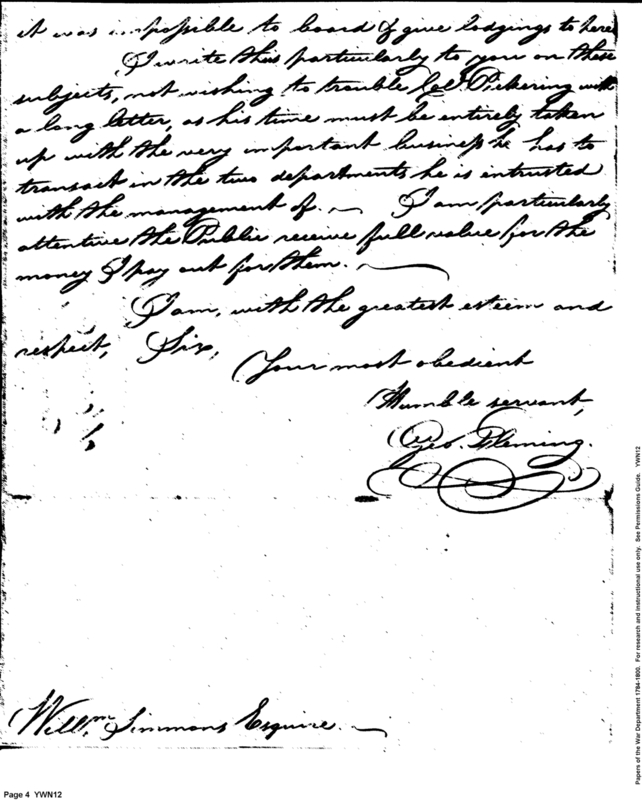 it was impossible to board & give lodgings to here
I write thus particularly to you on these
subjects, not wishing to trouble Col. Pickering with
a long letter, as his time must be entirely taken
up with the very important business he has to
transact in the two departments he is intrusted
with the management of. — I am particularly
attentive the Public receive full value for the
money I pay out for them. —
I am, with the greatest esteem and
respect, Sir,
Your most obedient
Humble servant,
Geo. Fleming.
Willm. Simmons Esquire. —
Page 4 YWN12
Papers of the War Department 1784-1800. For research and instructional use only. See Permissions Guide. YWN12